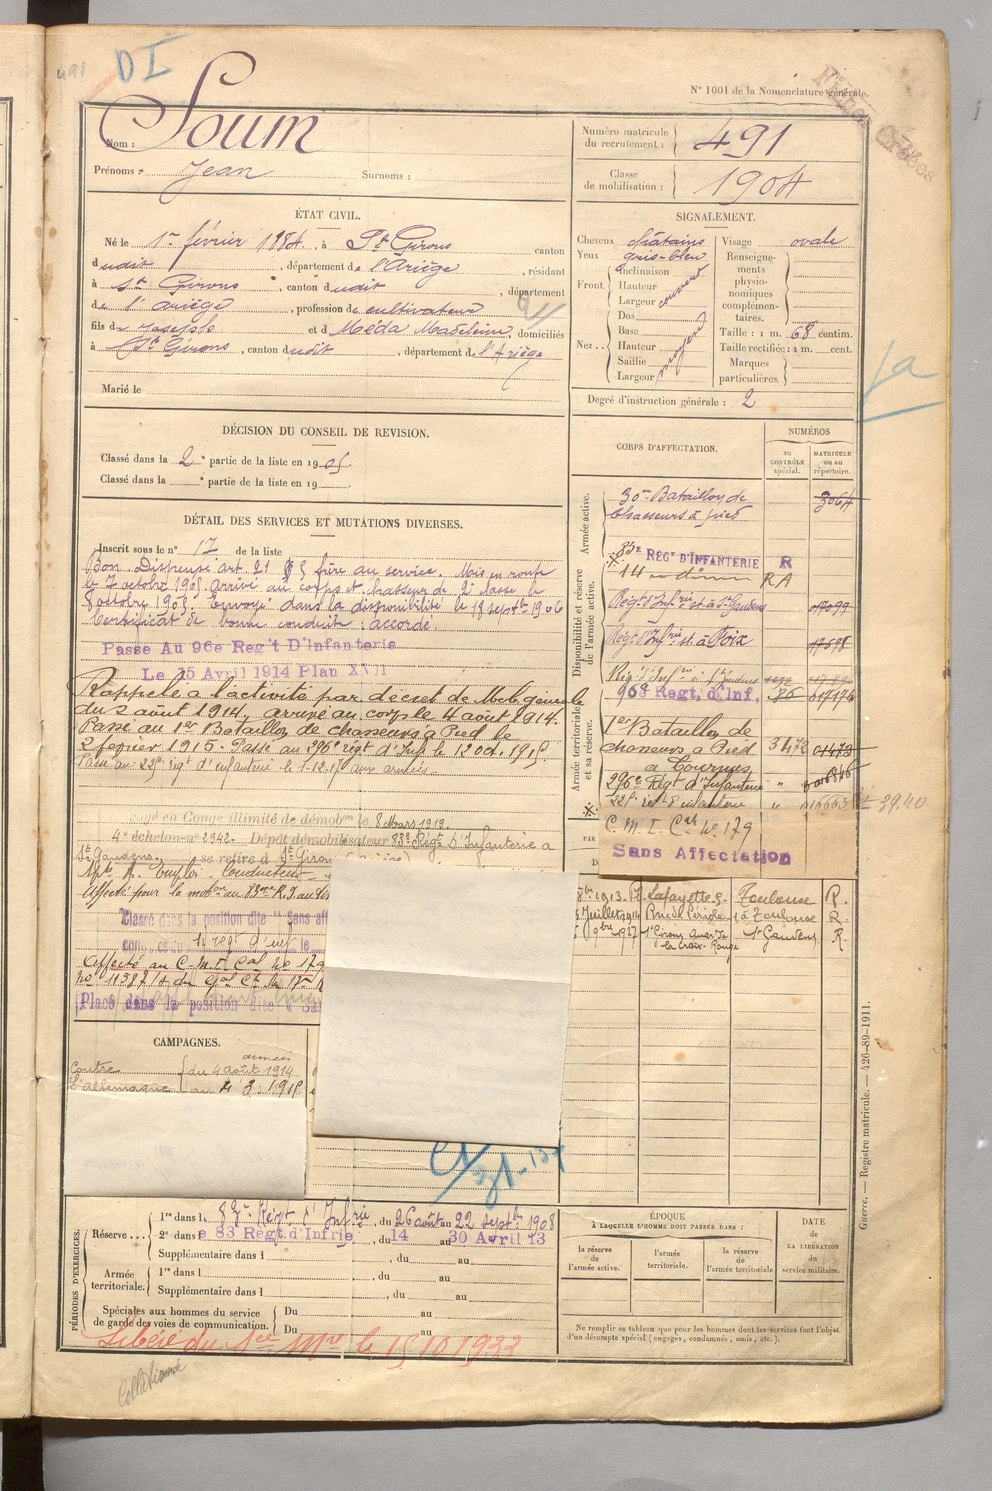 491
D I
N° 1001 de la Nomenclature générale.
Nom : Soum
Prénoms : Jean Surnoms :
Numéro matricule du recrutement : 491
Classe de mobilisation : 1904
ÉTAT CIVIL.
Né le 1er février 1884, à St Girons canton
dudit, département de l'Ariège, résidant
à St Girons, canton dudit, département
de l'Ariège, profession de cultivateur
fils de Joseph et de Méda Madeleine, domiciliés
à St Girons, canton dudit, département de l'Ariège
Marié le
SIGNALEMENT.
Cheveux châtains
Yeux gris-bleu
Front. Inclinaison
Hauteur
Largeur couvert
Nez . . Dos
Base
Hauteur
Saillie
Largeur moyen
Visage ovale
Renseignements physionomiques complémentaires.
Taille : 1 m. 68 centim.
Taille rectifiée : 1 m. cent.
Marques particulières.
Degré d'instruction générale : 2
1a
DÉCISION DU CONSEIL DE REVISION.
Classé dans la 2e partie de la liste en 1905.
Classé dans la e partie de la liste en 19
DÉTAIL DES SERVICES ET MUTATIONS DIVERSES.
Inscrit sous le n° 17 de la liste
Bon. Dispensé art. 21 § 5 frère au service. Mis en route
le 7 octobre 1905 arrivé au corps et chasseur de 2e classe le
8 octobre 1905. Envoyé dans la disponibilité le 18 septbre 1906
Certificat de bonne conduite : accordé.
Passe Au 96e Reg't D'Infanterie
Le 15 Avril 1914 Plan XVII
Rappelé à l'activité par décret de Mobon générale
du 2 août 1914, arrivé au corps le 4 août 1914.
Passé au 1er Bataillon de chasseurs à Pied le
2 février 1915. Passé au 296e régt d'Infie le 12 oct. 1915.
Passé au 225e régt d'infanterie le 1-12-15 aux armées.
voyé en Congé illimité de démobon le 8 Mars 1919.
4e échelon n° 2942. Dépôt démobilisateur 83e Régt D'Infanterie à
St Gaudens. se retire à St Girons
Apte A. Emploi. Conducteur
Affecté pour la mobon au 83me R.I.
Classé dans la position dite "Sans aff
régt d'inf le
Affecté au C.M.I. Cal No 179
No 11387/4 du Gal Ct la 17e R
Placé dans la position dite « Sa
CORPS D'AFFECTATION.
NUMÉROS
au contrôle spécial.
matricule ou au répertoire.
Armée active.
30me Bataillon de
Chasseurs à pied 3064
Disponibilité et réserve de l'armée active.
83e REGt D'INFANTERIE R
RA
Régt d'Infrie st. à St Gaudens 01099
Régt d'Infrie st. à Foix
Régt d'Infrie à St Gaudens
96e Regt, d'Inf.
Armée territoriale et sa réserve.
1er Bataillon de
chasseurs à Pied
à Tournus 01473
296e Régt d'Infanterie "
225e régt d'infanterie " 016663
39.40
C.M.I. Cal No 179
Sans Affectation
1913. Lafayette 5. Toulouse R.
Juillet 1914 Rue de Périole à Toulouse R.
9bre 1927 St Girons Quar. de la Croix-Rouge St Gaudens R.
CAMPAGNES.
Contre l'allemagne
armées
du 4 août 1914
PÉRIODES D'EXERCICES.
Réserve . . . 1re dans le 83me Régt d'Infrie, du 26 août au 22 septbre 1908
2e dans le 83 Regt. d'Infrie, du 14 au 30 Avril 13
Supplémentaire dans l , du au
Armée territoriale. 1re dans l , du au
Supplémentaire dans l , du au
Spéciales aux hommes du service de garde des voies de communication. Du au
Du au
Libéré du Sce Mre le 15 10 1933
ÉPOQUE
À LAQUELLE L'HOMME DOIT PASSER DANS :
la réserve de l'armée active.
l'armée territoriale.
la réserve de l'armée territoriale
DATE DE LA LIBÉRATION du service militaire.
Ne remplir ce tableau que pour les hommes dont les services font l'objet
d'un décompte spécial (engagés, condamnés, omis, etc.).
Guerre. — Registre matricule. — 426-89-1911.
Collationné